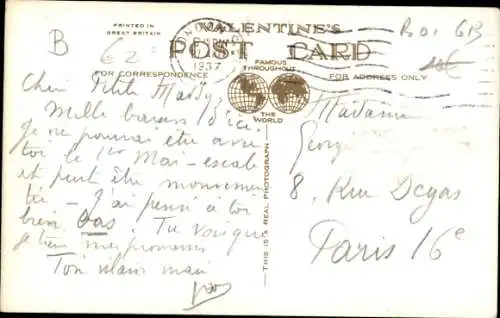 B
62
PRINTED IN
GREAT BRITAIN
VALENTINE'S
POST CARD
FOR CORRESPONDENCE
1937
FAMOUS
THROUGHOUT
THE
WORLD
FOR ADDRESS ONLY
THIS IS A REAL PHOTOGRAPH
Petite
Mille baisers d'ici.
Je ne pourrai être avec
toi le 1er Mai - escale
et peut être mouvemen
tée - J'ai pensé à toi
bien bas. Tu vois que
je tiens mes promesses
Ton
Madame
George
8, Rue Degas
Paris 16e